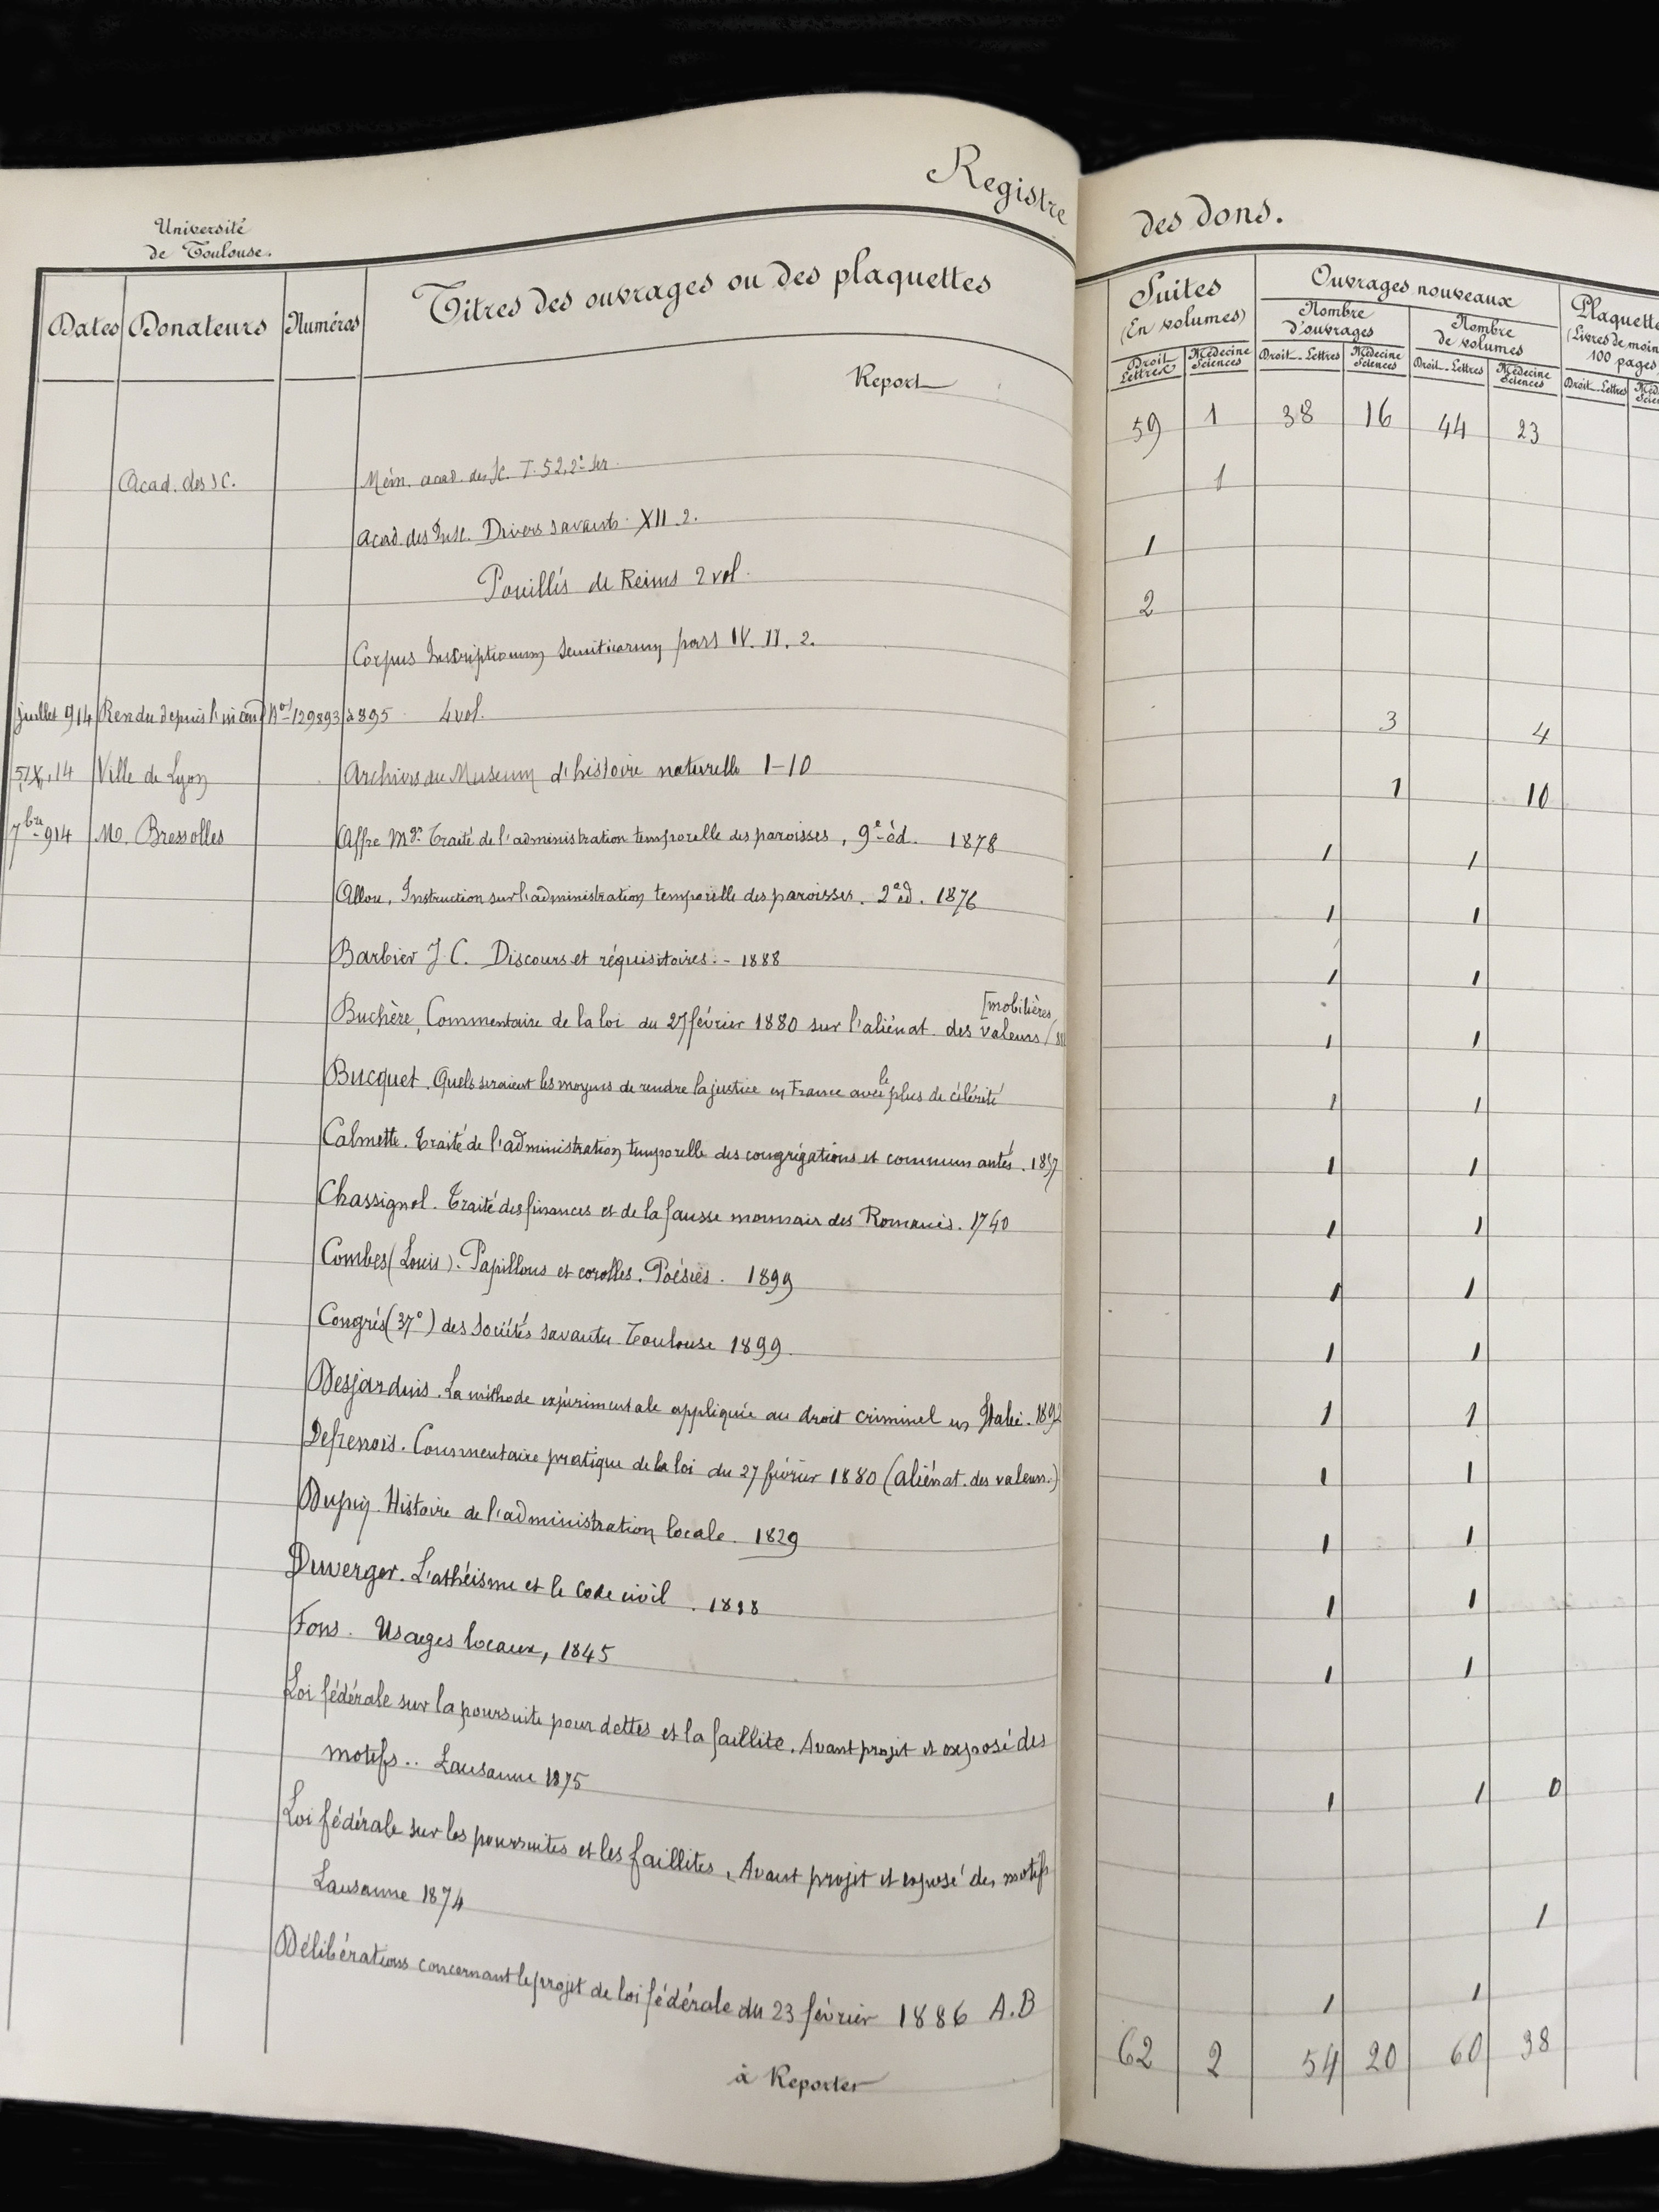 Registre des dons.
Université
de Toulouse.
Dates Donateurs Numéros Titres des ouvrages ou des plaquettes
Suites
(En volumes)
Droit Lettres Médecine Sciences
Ouvrages nouveaux
Nombre d'ouvrages
Droit-Lettres Médecine Sciences
Nombre de volumes
Droit-Lettres Médecine Sciences
Plaquette
(Livres de moin
100 pages
Droit-Lettres
Report 59 1 38 16 44 23
Acad. des Sc. Mém. acad. des Sc. T. 52, 2e ser. 1
Acad. des Insc. Divers savants XII. 2. 1
Pouillés de Reims 2 vol. 2
Corpus Inscriptionum Semiticarum pars IV. II. 2.
juillet 914 Rendu depuis l'incend Nos 129893 à 895 4 vol. 3 4
5, IX, 14 Ville de Lyon Archives du Museum d'histoire naturelle 1-10 1 10
7bre 914 M. Bressolles Affre Mgr. Traité de l'administration temporelle des paroisses, 9e éd. 1878 1 1
Allou, Instruction sur l'administration temporelle des paroisses. 2e éd. 1876 1 1
Barbier J. C. Discours et réquisitoires. - 1888 1 1
[mobilières
Buchère, Commentaire de la loi du 27 février 1880 sur l'aliénat. des valeurs 1 1
Bucquet. Quels seraient les moyens de rendre la justice en France avec le plus de célérité 1 1
Calmette. Traité de l'administration temporelle des congrégations et communautés. 1857 1 1
Chassignol. Traité des finances et de la fausse monnaie des Romains. 1740 1 1
Combes (Louis). Papillons et corolles. Poésies. 1899 1 1
Congrés (37e) des Sociétés savantes Toulouse 1899. 1 1
Desjardins. La méthode expérimentale appliquée au droit criminel en Italie. 1892 1 1
Defrenois. Commentaire pratique de la loi du 27 février 1880 (aliénat. des valeurs.) 1 1
Dupuy. Histoire de l'administration locale. 1829 1 1
Duverger. L'athéisme et le Code civil. 1888 1 1
Fons. Usages locaux, 1845 1 1
Loi fédérale sur la poursuite pour dettes et la faillite. Avant projet et exposé des
motifs.. Lausanne 1875 1 1 0
Loi fédérale sur les poursuites et les faillites, Avant projet et exposé des motifs
Lausanne 1874 1
Délibérations concernant le projet de loi fédérale du 23 février 1886 A.B 1 1
à Reporter 62 2 54 20 60 38